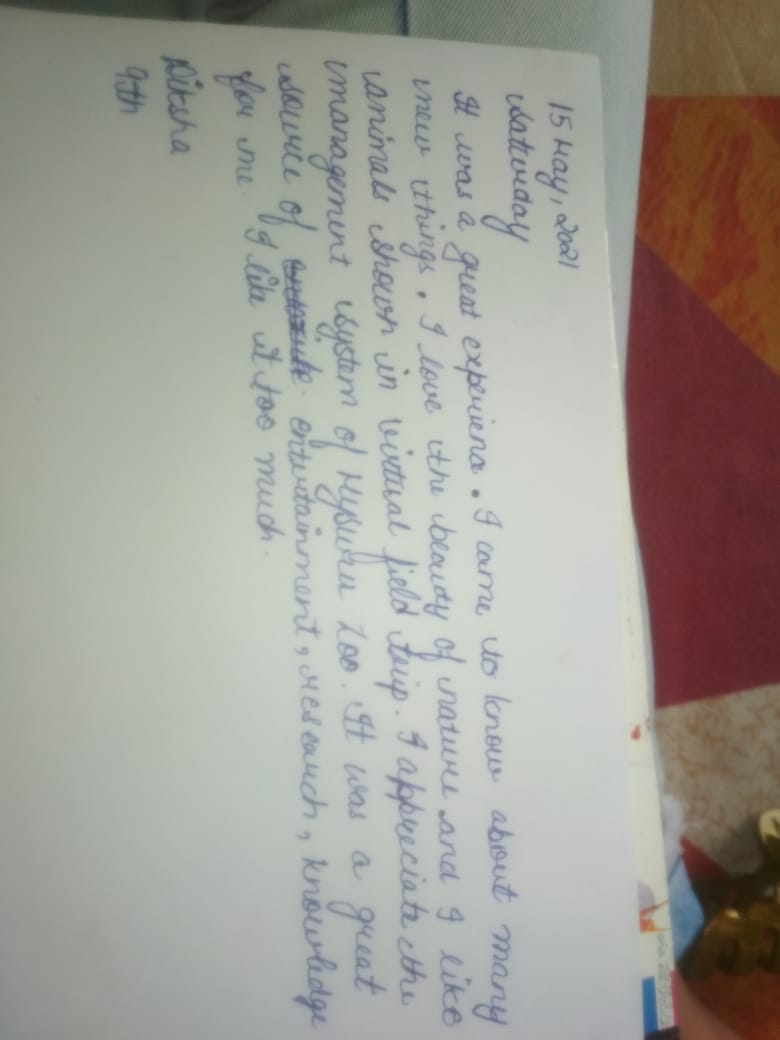 15 May, 2021
Saturday
It was a great experience. I came to know about many
new things. I love the beauty of nature and I like
animals shown in virtual field trip. I appreciate the
management system of Mysuru Zoo. It was a great
source of entertainment, research, knowledge
for me. I like it too much.
Diksha
9th